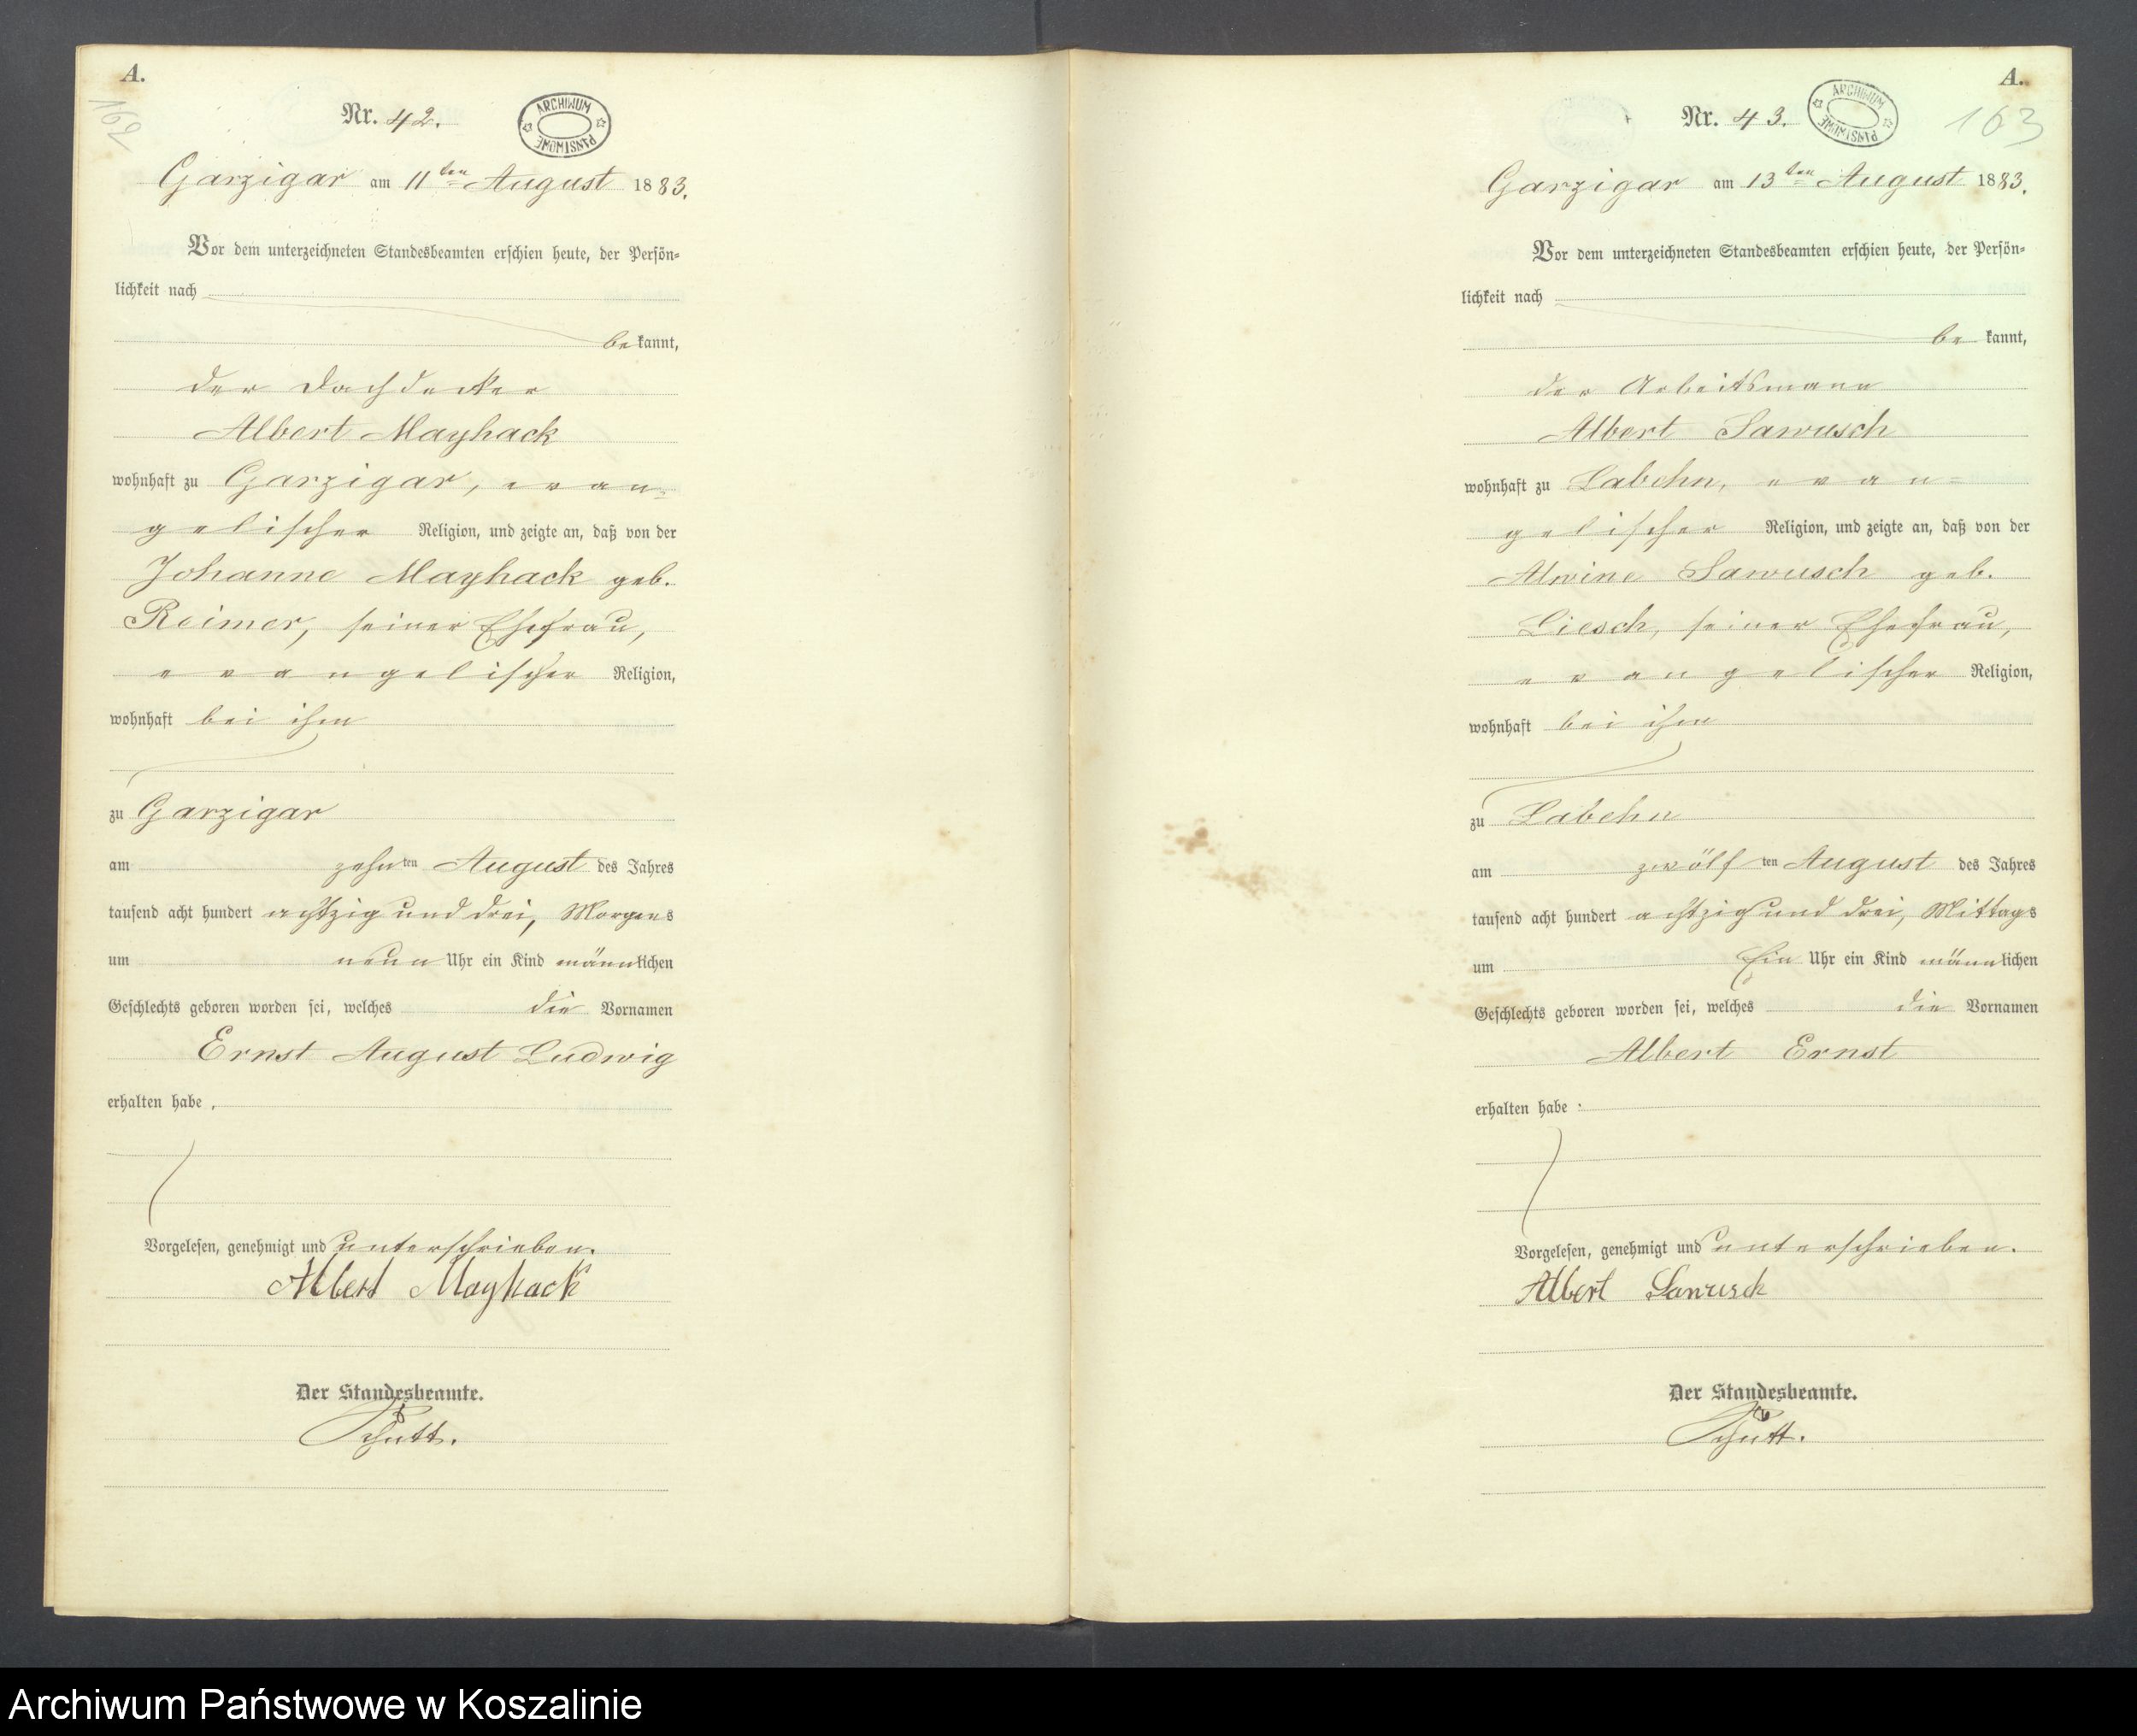 A.
162
Nr. 42.
ARCHIWUM PAŃSTWOWE
Garzigar am 11ten August 1883.
Vor dem unterzeichneten Standesbeamten erschien heute, der Persön-
lichkeit nach
be kannt,
der Dachdecker
Albert Mayhack
wohnhaft zu Garzigar, evan-
gelischer Religion, und zeigte an, daß von der
Johanne Mayhack geb.
Reimer, seiner Ehefrau,
evangelischer Religion,
wohnhaft bei ihm
zu Garzigar
am zehn ten August des Jahres
tausend acht hundert achtzig und drei, Morgens
um neun Uhr ein Kind männlichen
Geschlechts geboren worden sei, welches die Vornamen
Ernst August Ludwig
erhalten habe.
Vorgelesen, genehmigt und unterschrieben.
Albert Mayhack
Der Standesbeamte.
Schutt.
A.
Nr. 43.
ARCHIWUM PAŃSTWOWE
163
Garzigar am 13ten August 1883.
Vor dem unterzeichneten Standesbeamten erschien heute, der Persön-
lichkeit nach
be kannt,
der Arbeitsmann
Albert Sawusch
wohnhaft zu Labehn, evan-
gelischer Religion, und zeigte an, daß von der
Alwine Sawusch geb.
Liesch, seiner Ehefrau,
evangelischer Religion,
wohnhaft bei ihm
zu Labehn
am zwölf ten August des Jahres
tausend acht hundert achtzig und drei, Mittags
um Ein Uhr ein Kind männlichen
Geschlechts geboren worden sei, welches die Vornamen
Albert Ernst
erhalten habe.
Vorgelesen, genehmigt und unterschrieben.
Albert Sawusch
Der Standesbeamte.
Schutt.
Archiwum Państwowe w Koszalinie